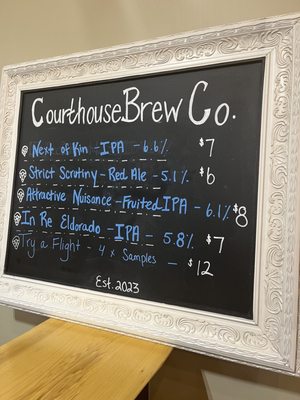 Courthouse Brew Co.
Next of Kin - IPA - 6.6% $7
Strict Scrutiny - Red Ale - 5.1% $6
Attractive Nuisance - Fruited IPA - 6.1% $8
In Re Eldorado - IPA - 5.8% $7
Try a Flight - 4 x Samples - $12
Est. 2023